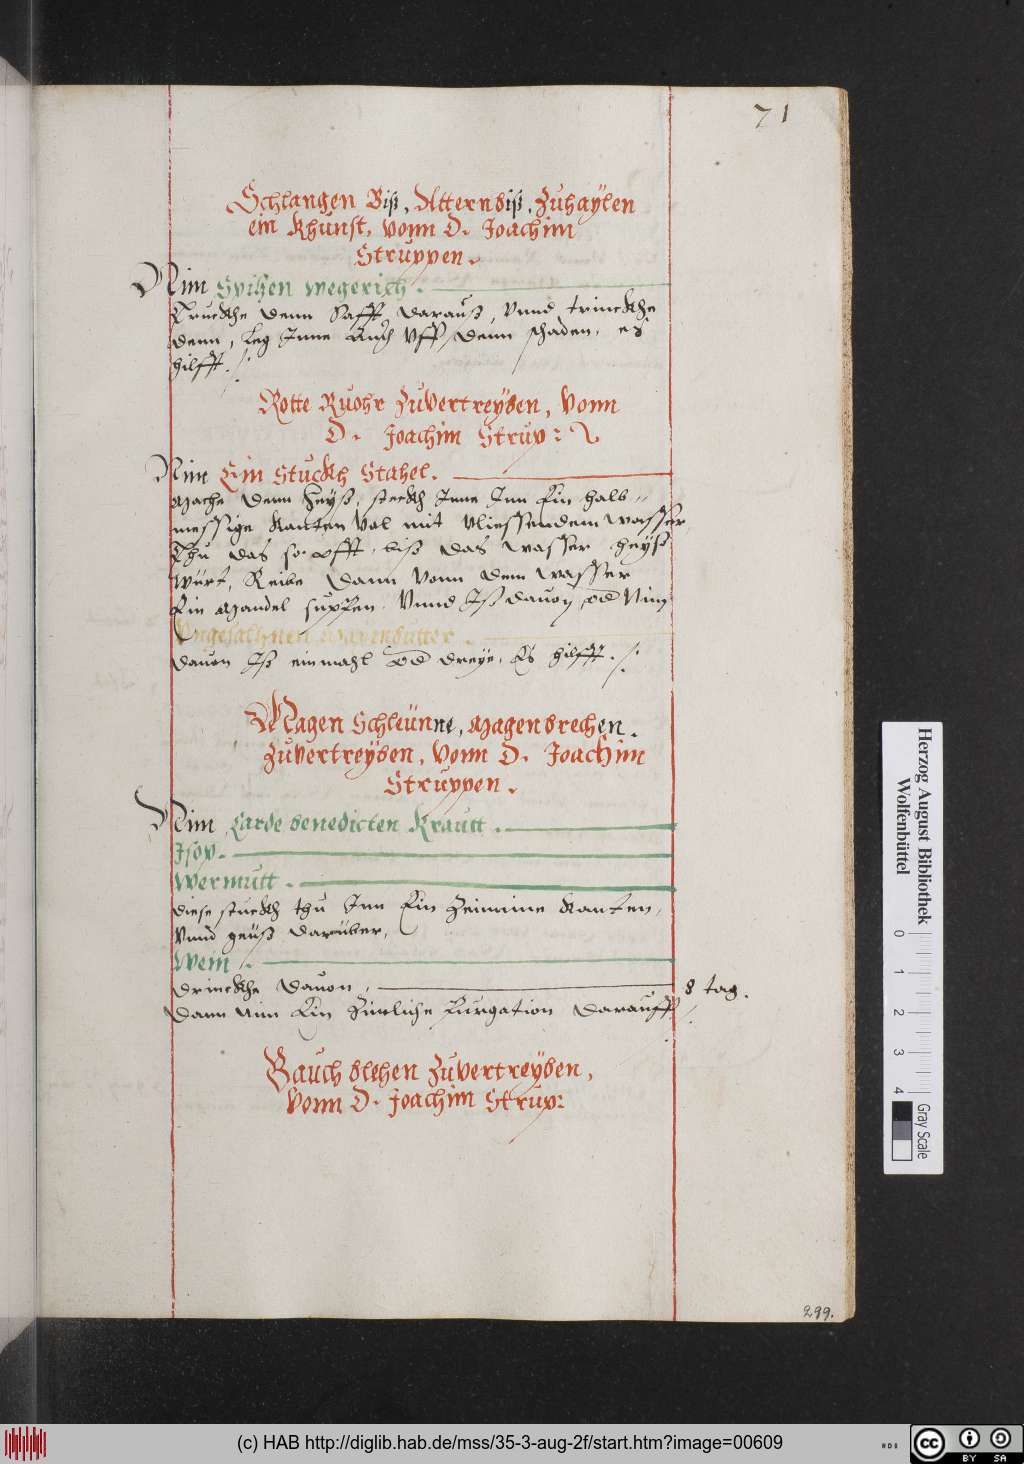 71
Schlangen Biß, Atternbiß, Zuhaylen
ein Khunst, vonn D. Joachim
Struppen.
Nim Spitzen wegerich.
Truckhe denn Safft darauß, Vnnd trinckhe
denn, leg Inne Auch Vff denn schaden, es
hilfft.
Rotte Ruohr Zuvertreyben, Vonn
D. Joachim Strup:
Nim Ein Stuckh Stahel.
Mache denn heyß, steckh Inne Inn Ein halb
messige kanten Vol mit vliessendem wasser
Thu das so offt, biß das wasser heyß
würt, Reibe dann vonn dem wasser
Ein Mandel suppen. Vnnd Iß dauon, od Nim
Vngesaltznen Mayenbutter.
dauon Iß einmahl od dreye, Es hilfft.
Magen Schleünne, Magenbrechen.
Zuvertreyben, Vonn D. Joachim
Struppen.
Nim Carde benedicten Krautt.
Isop.
Wermutt.
diese stuckh thu Inn Ein Zeinnine kanten,
Vnnd geüß darüber,
Wein
drinckhe dauon, 8 tag.
Dann Nim Ein Zimliche purgation darauff
Bauch blehen Zuvertreyben,
Vonn D. Joachim Strup:
299.
Herzog August Bibliothek
Wolfenbüttel
0 1 2 3 4
Gray Scale
(c) HAB http://diglib.hab.de/mss/35-3-aug-2f/start.htm?image=00609
cc BY SA